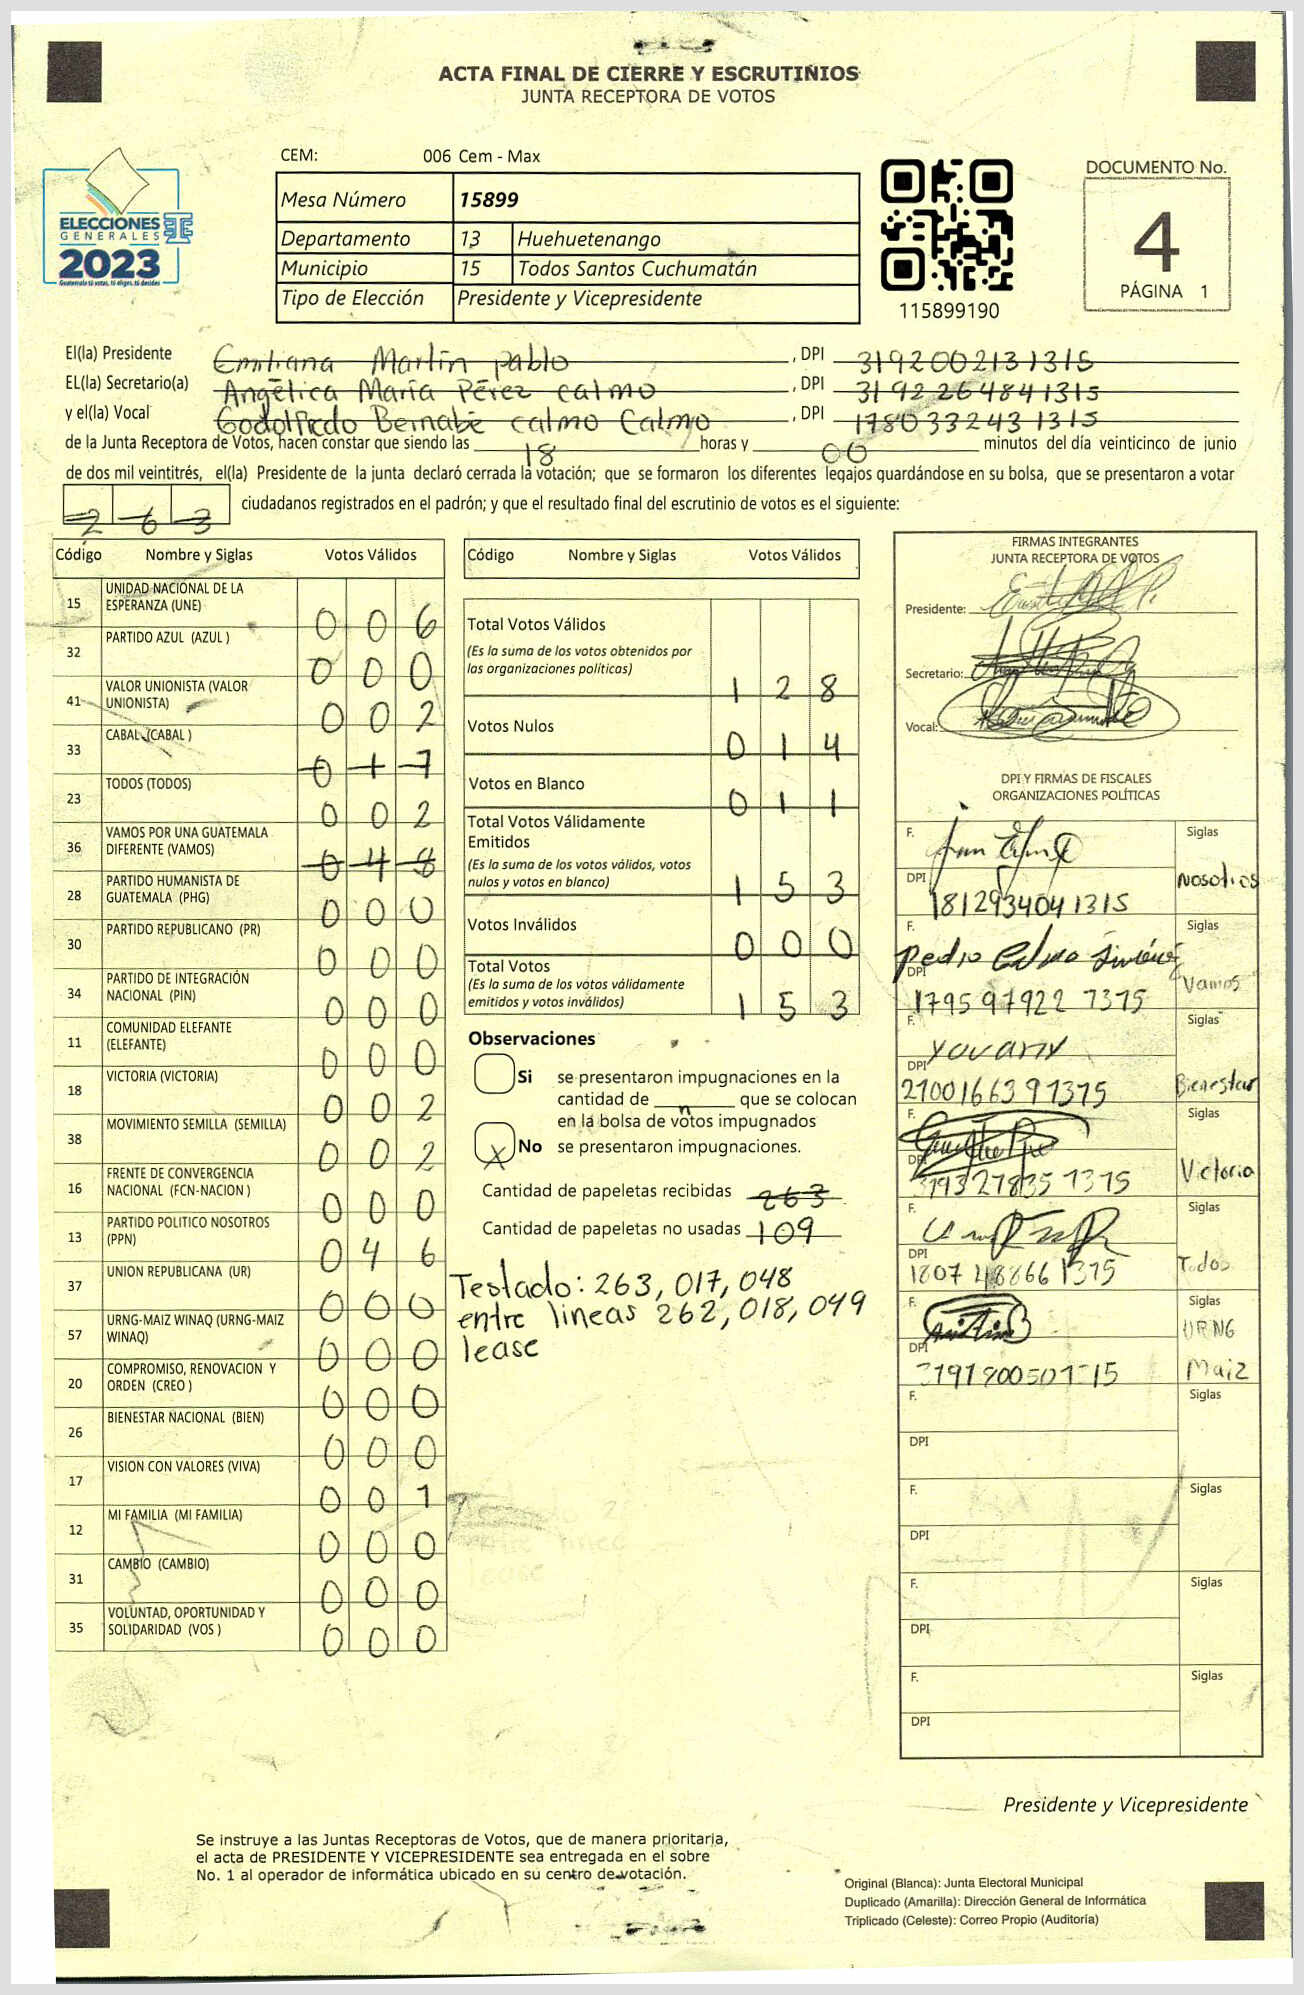 ACTA FINAL DE CIERRE Y ESCRUTINIOS
JUNTA RECEPTORA DE VOTOS
CEM: 006 Cem - Max
ELECCIONES
GENERALES
2023
Guatemala tú votas, tú eliges, tú decides
Mesa Número 15899
Departamento 13 Huehuetenango
Municipio 15 Todos Santos Cuchumatán
Tipo de Elección Presidente y Vicepresidente
115899190
DOCUMENTO No.
4
PÁGINA 1
El(la) Presidente Emiliana Martín pablo , DPI 3192002131315
EL(la) Secretario(a) Angélica María Pérez calmo , DPI 3192264841315
y el(la) Vocal Godolfredo Bernabé calmo Calmo , DPI 1780332431315
de la Junta Receptora de Votos, hacen constar que siendo las 18 horas y 00 minutos del día veinticinco de junio
de dos mil veintitrés, el(la) Presidente de la junta declaró cerrada la votación; que se formaron los diferentes legajos guardándose en su bolsa, que se presentaron a votar
263 ciudadanos registrados en el padrón; y que el resultado final del escrutinio de votos es el siguiente:
Código Nombre y Siglas Votos Válidos
15 UNIDAD NACIONAL DE LA ESPERANZA (UNE) 0 0 6
32 PARTIDO AZUL (AZUL ) 0 0 0
41 VALOR UNIONISTA (VALOR UNIONISTA) 0 0 2
33 CABAL (CABAL ) 0 1 7
23 TODOS (TODOS) 0 0 2
36 VAMOS POR UNA GUATEMALA DIFERENTE (VAMOS) 0 4 8
28 PARTIDO HUMANISTA DE GUATEMALA (PHG) 0 0 0
30 PARTIDO REPUBLICANO (PR) 0 0 0
34 PARTIDO DE INTEGRACIÓN NACIONAL (PIN) 0 0 0
11 COMUNIDAD ELEFANTE (ELEFANTE) 0 0 0
18 VICTORIA (VICTORIA) 0 0 2
38 MOVIMIENTO SEMILLA (SEMILLA) 0 0 2
16 FRENTE DE CONVERGENCIA NACIONAL (FCN-NACION ) 0 0 0
13 PARTIDO POLITICO NOSOTROS (PPN) 0 4 6
37 UNION REPUBLICANA (UR) 0 0 0
57 URNG-MAIZ WINAQ (URNG-MAIZ WINAQ) 0 0 0
20 COMPROMISO, RENOVACION Y ORDEN (CREO ) 0 0 0
26 BIENESTAR NACIONAL (BIEN) 0 0 0
17 VISION CON VALORES (VIVA) 0 0 1
12 MI FAMILIA (MI FAMILIA) 0 0 0
31 CAMBIO (CAMBIO) 0 0 0
35 VOLUNTAD, OPORTUNIDAD Y SOLIDARIDAD (VOS ) 0 0 0
Código Nombre y Siglas Votos Válidos
Total Votos Válidos 1 2 8
(Es la suma de los votos obtenidos por
las organizaciones políticas)
Votos Nulos 0 1 4
Votos en Blanco 0 1 1
Total Votos Válidamente
Emitidos 1 5 3
(Es la suma de los votos válidos, votos
nulos y votos en blanco)
Votos Inválidos 0 0 0
Total Votos 1 5 3
(Es la suma de los votos válidamente
emitidos y votos inválidos)
Observaciones
Si se presentaron impugnaciones en la
cantidad de n que se colocan
en la bolsa de votos impugnados
X No se presentaron impugnaciones.
Cantidad de papeletas recibidas 263
Cantidad de papeletas no usadas 109
Testado: 263, 017, 048
entre lineas 262, 018, 049
lease
FIRMAS INTEGRANTES
JUNTA RECEPTORA DE VOTOS
Presidente:
Secretario:
Vocal:
DPI Y FIRMAS DE FISCALES
ORGANIZACIONES POLÍTICAS
F. Siglas
DPI 1812934041315 Nosotros
F. Pedro Calmo Jiménez Siglas
DPI 1795 97922 1315 Vamos
F. Yovany Siglas
DPI 2100166391315 Bienestar
F. Siglas
DPI Victoria
F. Siglas
DPI Todos
F. Siglas
DPI URNG Maiz
F. Siglas
DPI
F. Siglas
DPI
F. Siglas
DPI
F. Siglas
DPI
Presidente y Vicepresidente
Se instruye a las Juntas Receptoras de Votos, que de manera prioritaria,
el acta de PRESIDENTE Y VICEPRESIDENTE sea entregada en el sobre
No. 1 al operador de informática ubicado en su centro de votación.
Original (Blanca): Junta Electoral Municipal
Duplicado (Amarilla): Dirección General de Informática
Triplicado (Celeste): Correo Propio (Auditoría)